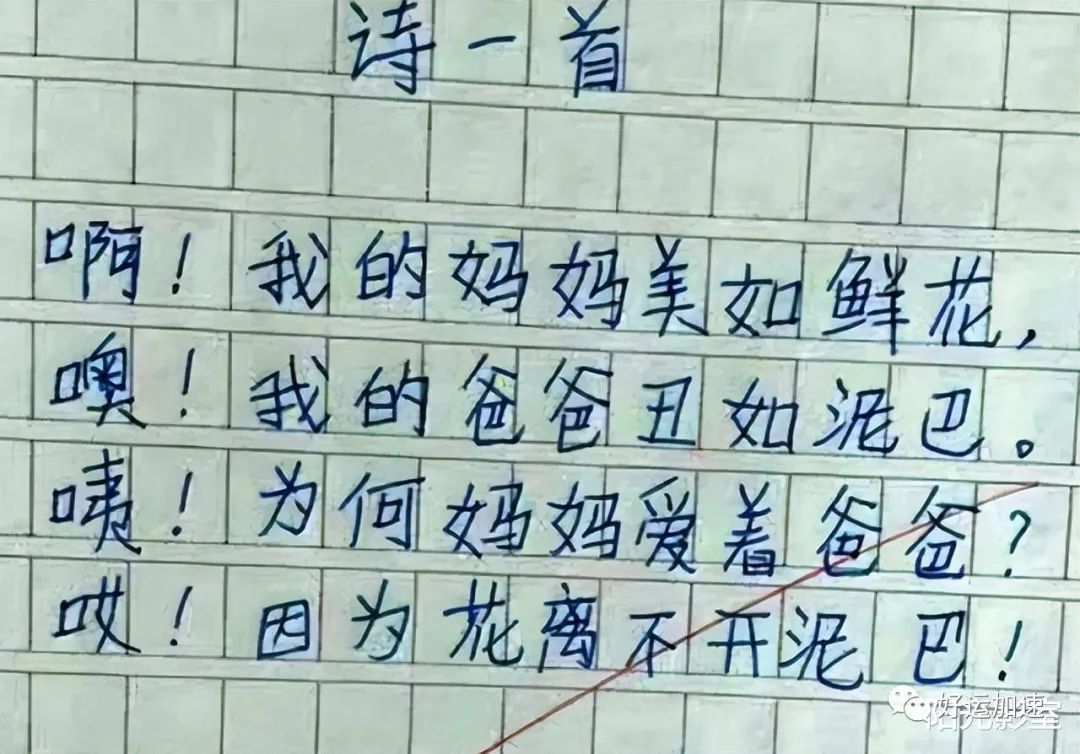 诗一首
啊！我的妈妈美如鲜花，
噢！我的爸爸丑如泥巴。
咦！为何妈妈爱着爸爸？
哎！因为花离不开泥巴！
好运加速